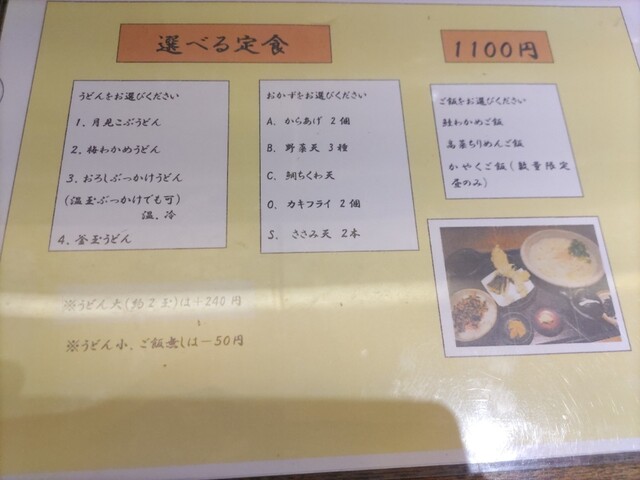 選べる定食
1100円
うどんをお選びください
1. 月見こぶうどん
2. 梅わかめうどん
3. おろしぶっかけうどん
(温玉ぶっかけでも可)
温、冷
4. 釜玉うどん
おかずをお選びください
A. からあげ 2個
B. 野菜天 3種
C. 鯛ちくわ天
O. カキフライ 2個
S. ささみ天 2本
ご飯をお選びください
鮭わかめご飯
高菜ちりめんご飯
かやくご飯(数量限定
昼のみ)
※うどん大(約2玉)は+240円
※うどん小、ご飯無しは-50円